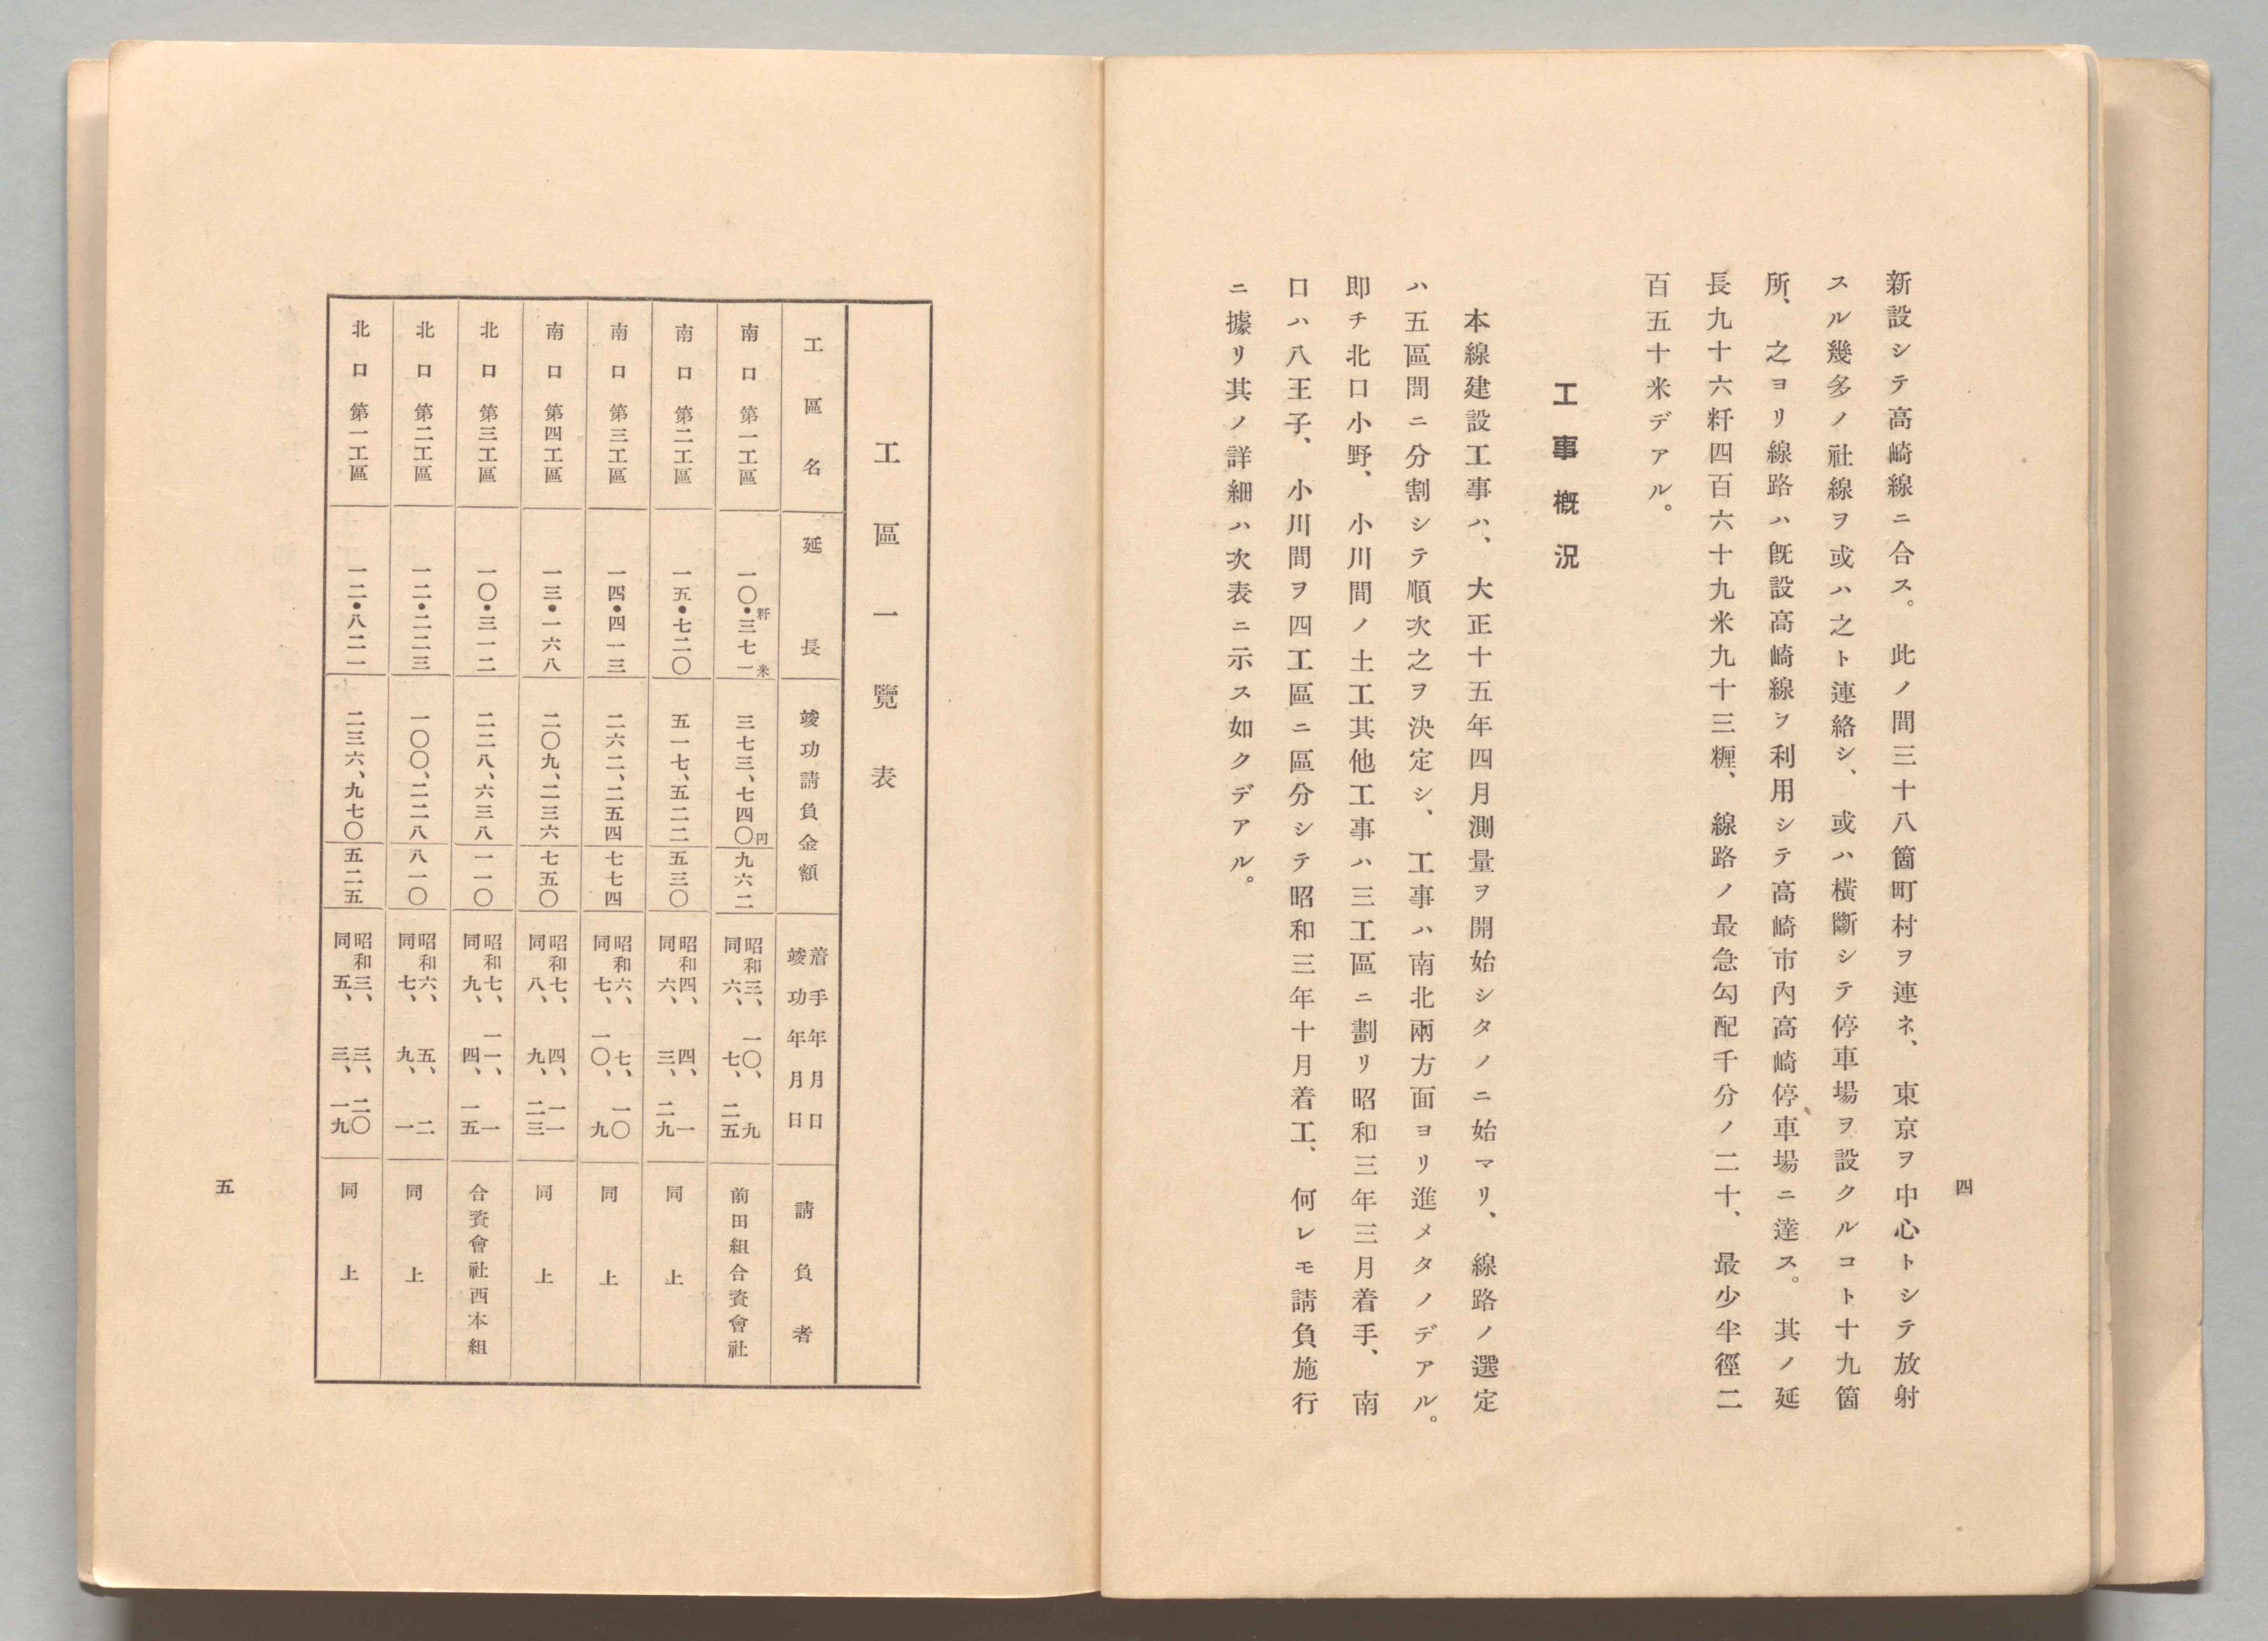 四
新設シテ高崎線ニ合ス。此ノ間三十八箇町村ヲ連ネ、東京ヲ中心トシテ放射
スル幾多ノ社線ヲ或ハ之ト連絡シ、或ハ橫斷シテ停車場ヲ設クルコト十九箇
所、之ヨリ線路ハ旣設高崎線ヲ利用シテ高崎市內高崎停車場ニ達ス。其ノ延
長九十六粁四百六十九米九十三糎、線路ノ最急勾配千分ノ二十、最少半徑二
百五十米デアル。
工事槪況
本線建設工事ハ、大正十五年四月測量ヲ開始シタノニ始マリ、線路ノ選定
ハ五區間ニ分割シテ順次之ヲ決定シ、工事ハ南北兩方面ヨリ進メタノデアル。
卽チ北口小野、小川間ノ土工其他工事ハ三工區ニ劃リ昭和三年三月着手、南
口ハ八王子、小川間ヲ四工區ニ區分シテ昭和三年十月着工、何レモ請負施行
ニ據リ其ノ詳細ハ次表ニ示ス如クデアル。
工區一覽表
工區名 延長 竣功請負金額 着手年月日 竣功年月日 請負者
南口第一工區 一〇・三七一 粁 米 三七三、七四〇 円 九六二 昭和三、一〇、九 同六、七、二五 前田組合資會社
南口第二工區 一五・七二〇 五一七、五二二 五三〇 昭和四、四、一 同六、三、二九 同上
南口第三工區 一四・四一三 二六二、二五四 七七四 昭和六、七、一〇 同七、一〇、九 同上
南口第四工區 一三・一六八 二〇九、二三六 七五〇 昭和七、四、一一 同八、九、二三 同上
北口第三工區 一〇・三一二 二二八、六三八 一一〇 昭和七、一一、一 同九、四、一五 合資會社西本組
北口第二工區 一二・二二三 一〇〇、二二八 八一〇 昭和六、五、二 同七、九、一 同上
北口第一工區 一二・八二一 二三六、九七〇 五二五 昭和三、三、二〇 同五、三、一九 同上
五